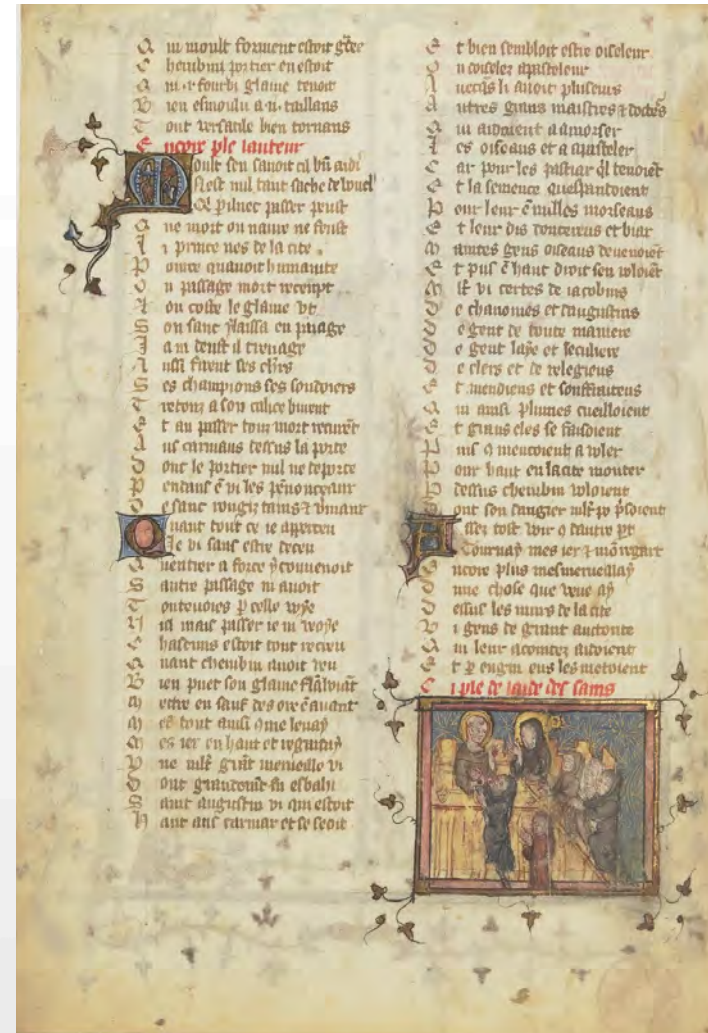 Q ui moult forment estoit gtee
C herubim portier en estoit
Q ui .i. fourbi glaiue tenoit
B ien esmoulu a .ii. taillans
T out versatile bien tornans
E ncore ple lauteur
M oult seu sauoit cil bñ aidi
N est nul tant sache de
Q passer peust
Q ne mort ou naure ne fust
L i prince nes de la cite
P ource quauoit humanite
O n passage mort receupt
A on coste le glaiue
S on sanc y laissa en paiage
I a ni deust il treuage
A ussi firent ses chlrs
S es champions ses soudoiers
T retouz a son calice burent
E t au passer touz mort recurēt
A us carniaus dessus la porte
D ont le portier nul ne deporte
P endans ē vi les pēnonceaux
D e sanc rougiz tains
Q uant tout ce ie apperceu
Ie vi sans estre deceu
Q uentrer a force y conuenoit
S autre passage ni auoit
T outeuoies p celle voye
N ul mais passer ie ni veoye
C hascuns estoit tout recreu
Q uant cherubin auoit veu
B ien puet son glaiue
M ectre en sauf des ore ēauant
M es tout ausi 9me leuay
M es iex en haut et regarday
V ne mlt grāt merueille vi
D ont
S aint augustin vi qui estoit
H aut aus carniax et se seoit
E t bien sembloit estre oiseleur
O u doiselez apasteleur
A uecqs li auoit pluseurs
A utres grans maistres 7 doctrs
Q ui aidoient a amorser
L es oiseaus et a apasteler
C ar pour les pastiaz ql tenoiēt
E t la semence quespandoient
P our leur morseaus
E t leur dis doucereus et biax
M aintes gens oiseaus deuenoiēt
E t puis ē haut droit sen voloiēt
M lt vi certes de iacobins
D e chanoines et daugustins
D e gent de toute maniere
D e gent laye et seculiere
D e clers et de relegieus
E t mendiens et souffraiteus
Q ui ainsi plumes cueilloient
E t grans eles se faisoient
P uis 9 mencoient a voler
P our haut en la cite monter
D essus cherubin voloient
D ont son dangier mlt po prsoient
A ssez tost 9 dautre pt
Tournay mes iex 7 mō regart
E ncore plus mesmerueillay
D une chose que veue ay
D essus les murs de la cite
V i gens de grant auctorite
Q ui leur acointez aidoient
E t p engin ens les metoient
C i ple de laide des sains